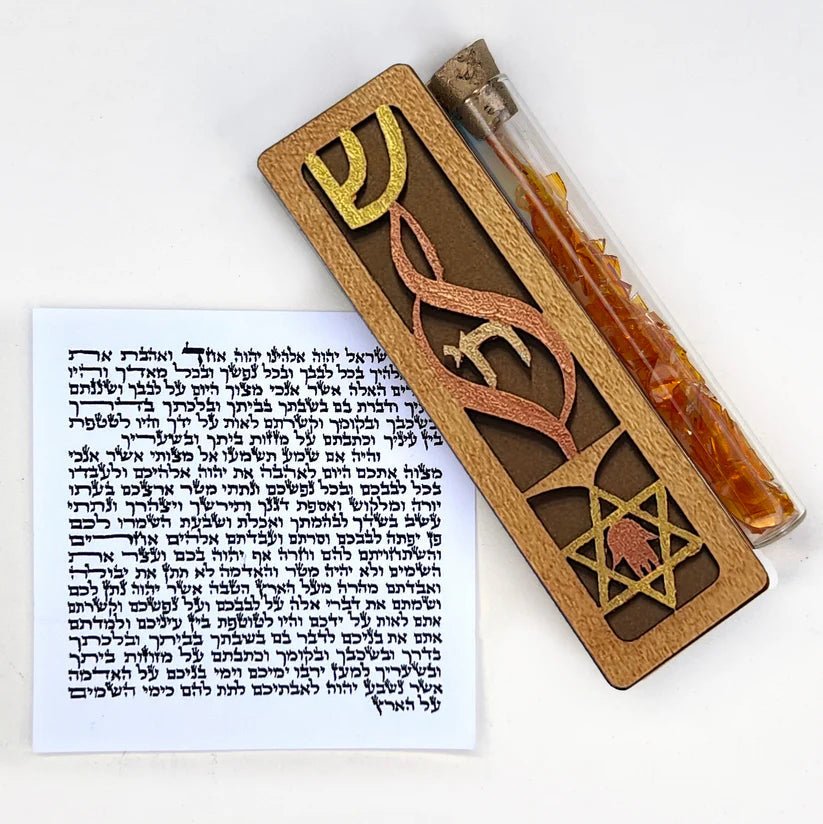 ש
חי
שראל יהוה אלהינו יהוה אחד ואהבת את
להיך בכל לבבך ובכל נפשך ובכל מאדך והיו
ים האלה אשר אנכי מצוך היום על לבבך ושננתם
יך ודברת בם בשבתך בביתך ובלכתך בדרך
בשכבך ובקומך וקשרתם לאות על ידך והיו לטטפת
בין עיניך וכתבתם על מזזות ביתך ובשעריך
והיה אם שמע תשמעו אל מצותי אשר אנכי
מצוה אתכם היום לאהבה את יהוה אלהיכם ולעבדו
בכל לבבכם ובכל נפשכם ונתתי מטר ארצכם בעתו
יורה ומלקוש ואספת דגנך ותירשך ויצהרך ונתתי
עשב בשדך לבהמתך ואכלת ושבעת השמרו לכם
פן יפתה לבבכם וסרתם ועבדתם אלהים אחרים
והשתחויתם להם וחרה אף יהוה בכם ועצר את
השמים ולא יהיה מטר והאדמה לא תתן את יבולה
ואבדתם מהרה מעל הארץ הטבה אשר יהוה נתן לכם
ושמתם את דברי אלה על לבבכם ועל נפשכם וקשרתם
אתם לאות על ידכם והיו לטוטפת בין עיניכם ולמדתם
אתם את בניכם לדבר בם בשבתך בביתך ובלכתך
בדרך ובשכבך ובקומך וכתבתם על מזוזות ביתך
ובשעריך למען ירבו ימיכם וימי בניכם על האדמה
אשר נשבע יהוה לאבתיכם לתת להם כימי השמים
על הארץ